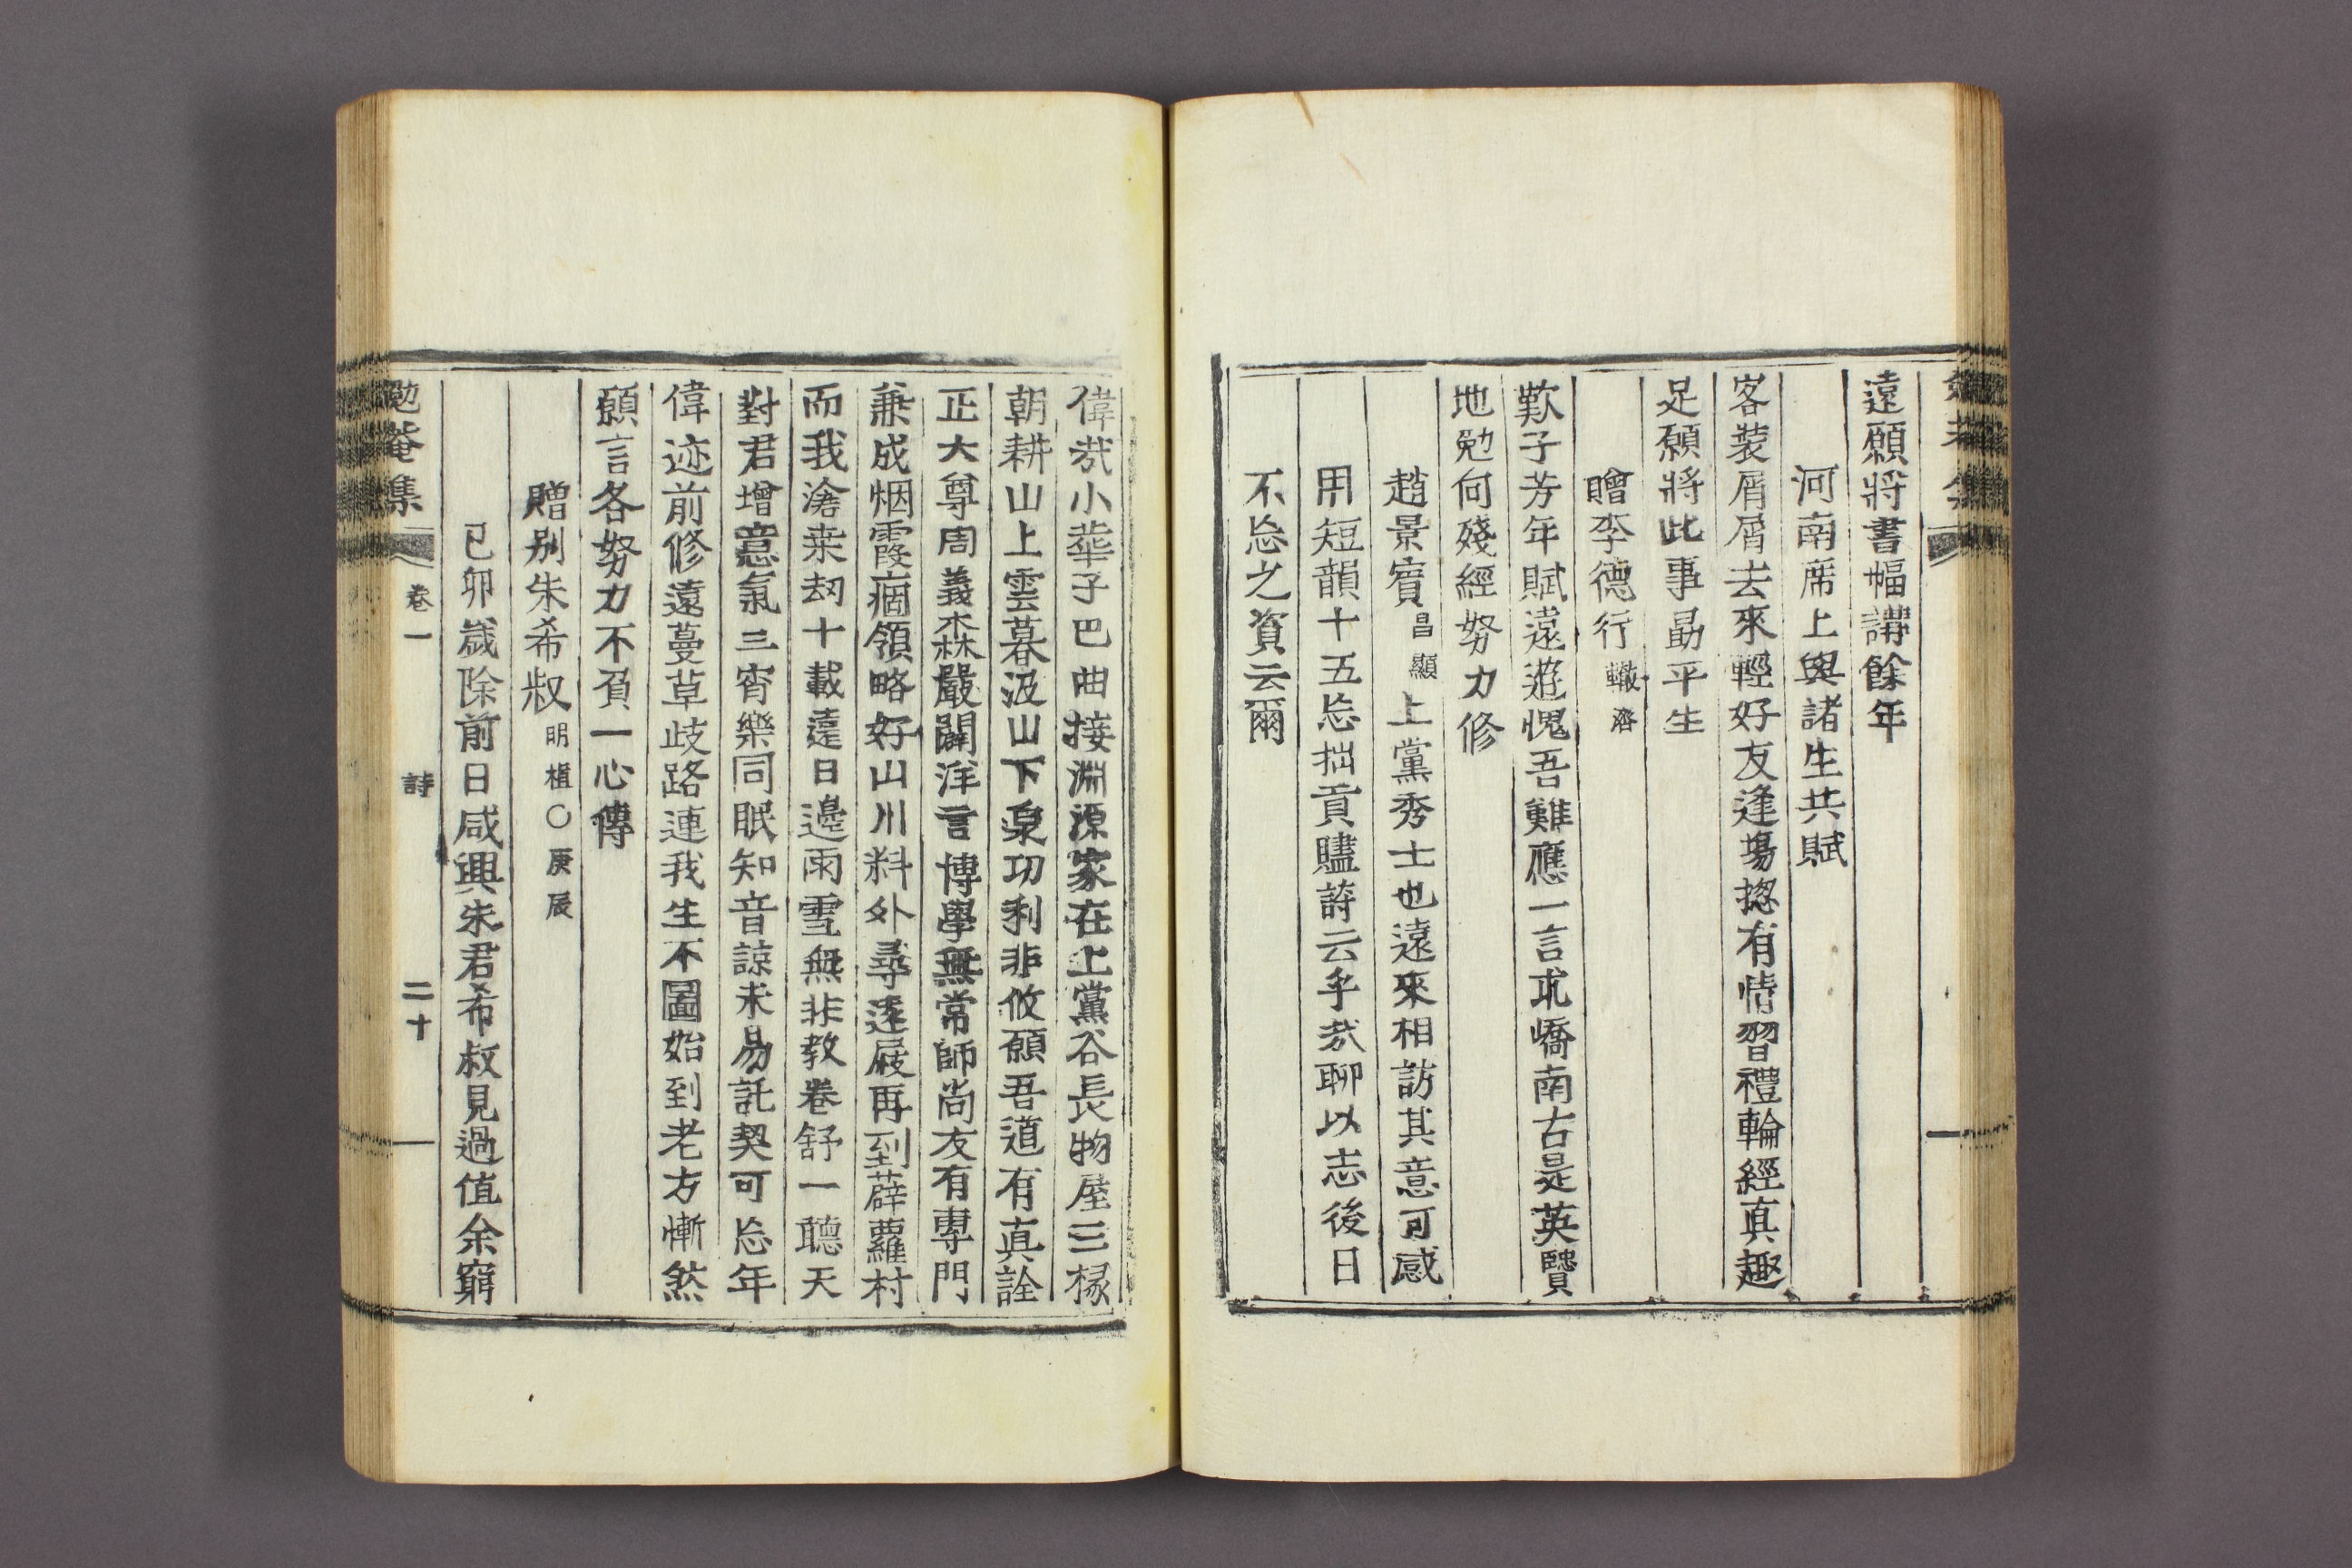 遠願將書幅講餘年
河南席上與諸生共賦
客裝屑屑去來輕好友逢場揔有情習禮輪經眞趣
足願將此事勗平生
贈李德行轍溶
歎子芳年賦遠遊愧吾難應一言求嶠南古是英賢
地勉何殘經努力修
趙景賓昌顯上黨秀士也遠來相訪其意可感
用短韻十五忘拙貢贐詩云乎哉聊以志後日
不忘之資云爾
偉哉小華子巴曲接淵源家在上黨谷長物屋三椽
朝耕山上雲暮汲山下泉功利非攸願吾道有眞詮
正大尊周義森嚴闢洋言博學無常師尚友有專門
兼成烟霞痼領略好山川料外尋逐屐再到薜蘿村
而我滄桒刼十載違日邊雨雪無非敎卷舒一聽天
對君增意氣三宵樂同眠知音諒未易託契可忘年
偉迹前修遠蔓草歧路連我生不圖始到老方慚然
願言各努力不負一心傳
贈别朱希叔明植○庚辰
己卯歲除前日咸興朱君希叔見過值余窮
勉菴集 卷一 詩 二十